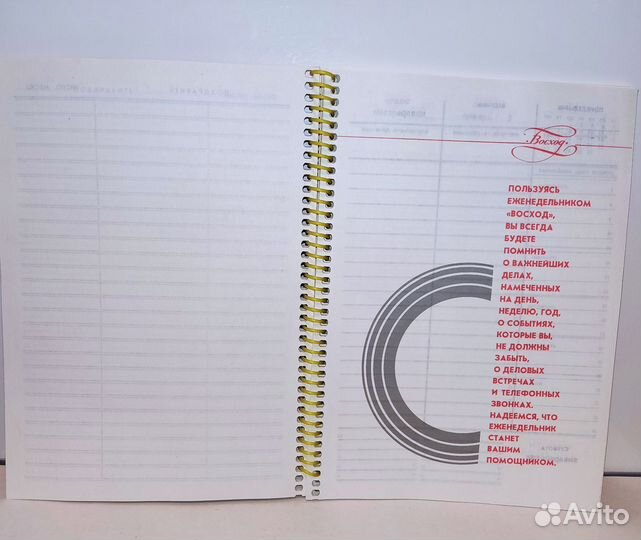 Восход
ПОЛЬЗУЯСЬ
ЕЖЕНЕДЕЛЬНИКОМ
«ВОСХОД»,
ВЫ ВСЕГДА
БУДЕТЕ
ПОМНИТЬ
О ВАЖНЕЙШИХ
ДЕЛАХ,
НАМЕЧЕННЫХ
НА ДЕНЬ,
НЕДЕЛЮ, ГОД,
О СОБЫТИЯХ,
КОТОРЫЕ ВЫ,
НЕ ДОЛЖНЫ
ЗАБЫТЬ,
О ДЕЛОВЫХ
ВСТРЕЧАХ
И ТЕЛЕФОННЫХ
ЗВОНКАХ.
НАДЕЕМСЯ, ЧТО
ЕЖЕНЕДЕЛЬНИК
СТАНЕТ
ВАШИМ
ПОМОЩНИКОМ.
Avito